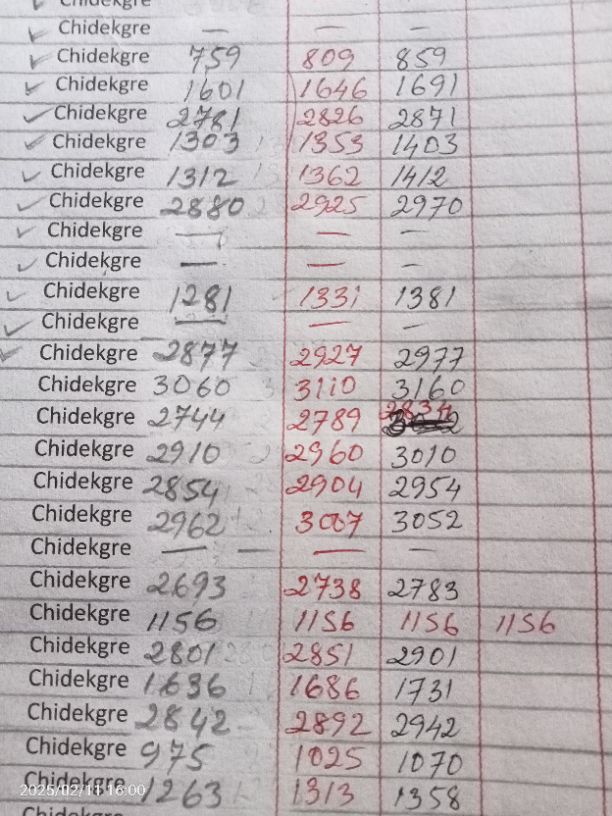 Chidekgre
✓ Chidekgre — — —
✓ Chidekgre 759 809 859
✓ Chidekgre 1601 1646 1691
✓ Chidekgre 2781 2826 2871
✓ Chidekgre 1303 1353 1403
✓ Chidekgre 1312 1362 1412
✓ Chidekgre 2880 2925 2970
✓ Chidekgre — — —
✓ Chidekgre — — —
✓ Chidekgre 1281 1331 1381
✓ Chidekgre — — —
✓ Chidekgre 2877 2927 2977
Chidekgre 3060 3110 3160
Chidekgre 2744 2789 2834
Chidekgre 2910 2960 3010
Chidekgre 2854 2904 2954
Chidekgre 2962 3007 3052
Chidekgre — — — —
Chidekgre 2693 2738 2783
Chidekgre 1156 1156 1156 1156
Chidekgre 2801 2851 2901
Chidekgre 1636 1686 1731
Chidekgre 2842 2892 2942
Chidekgre 975 1025 1070
Chidekgre 1263 1313 1358
2025/02/11 16:00
Chidekgre